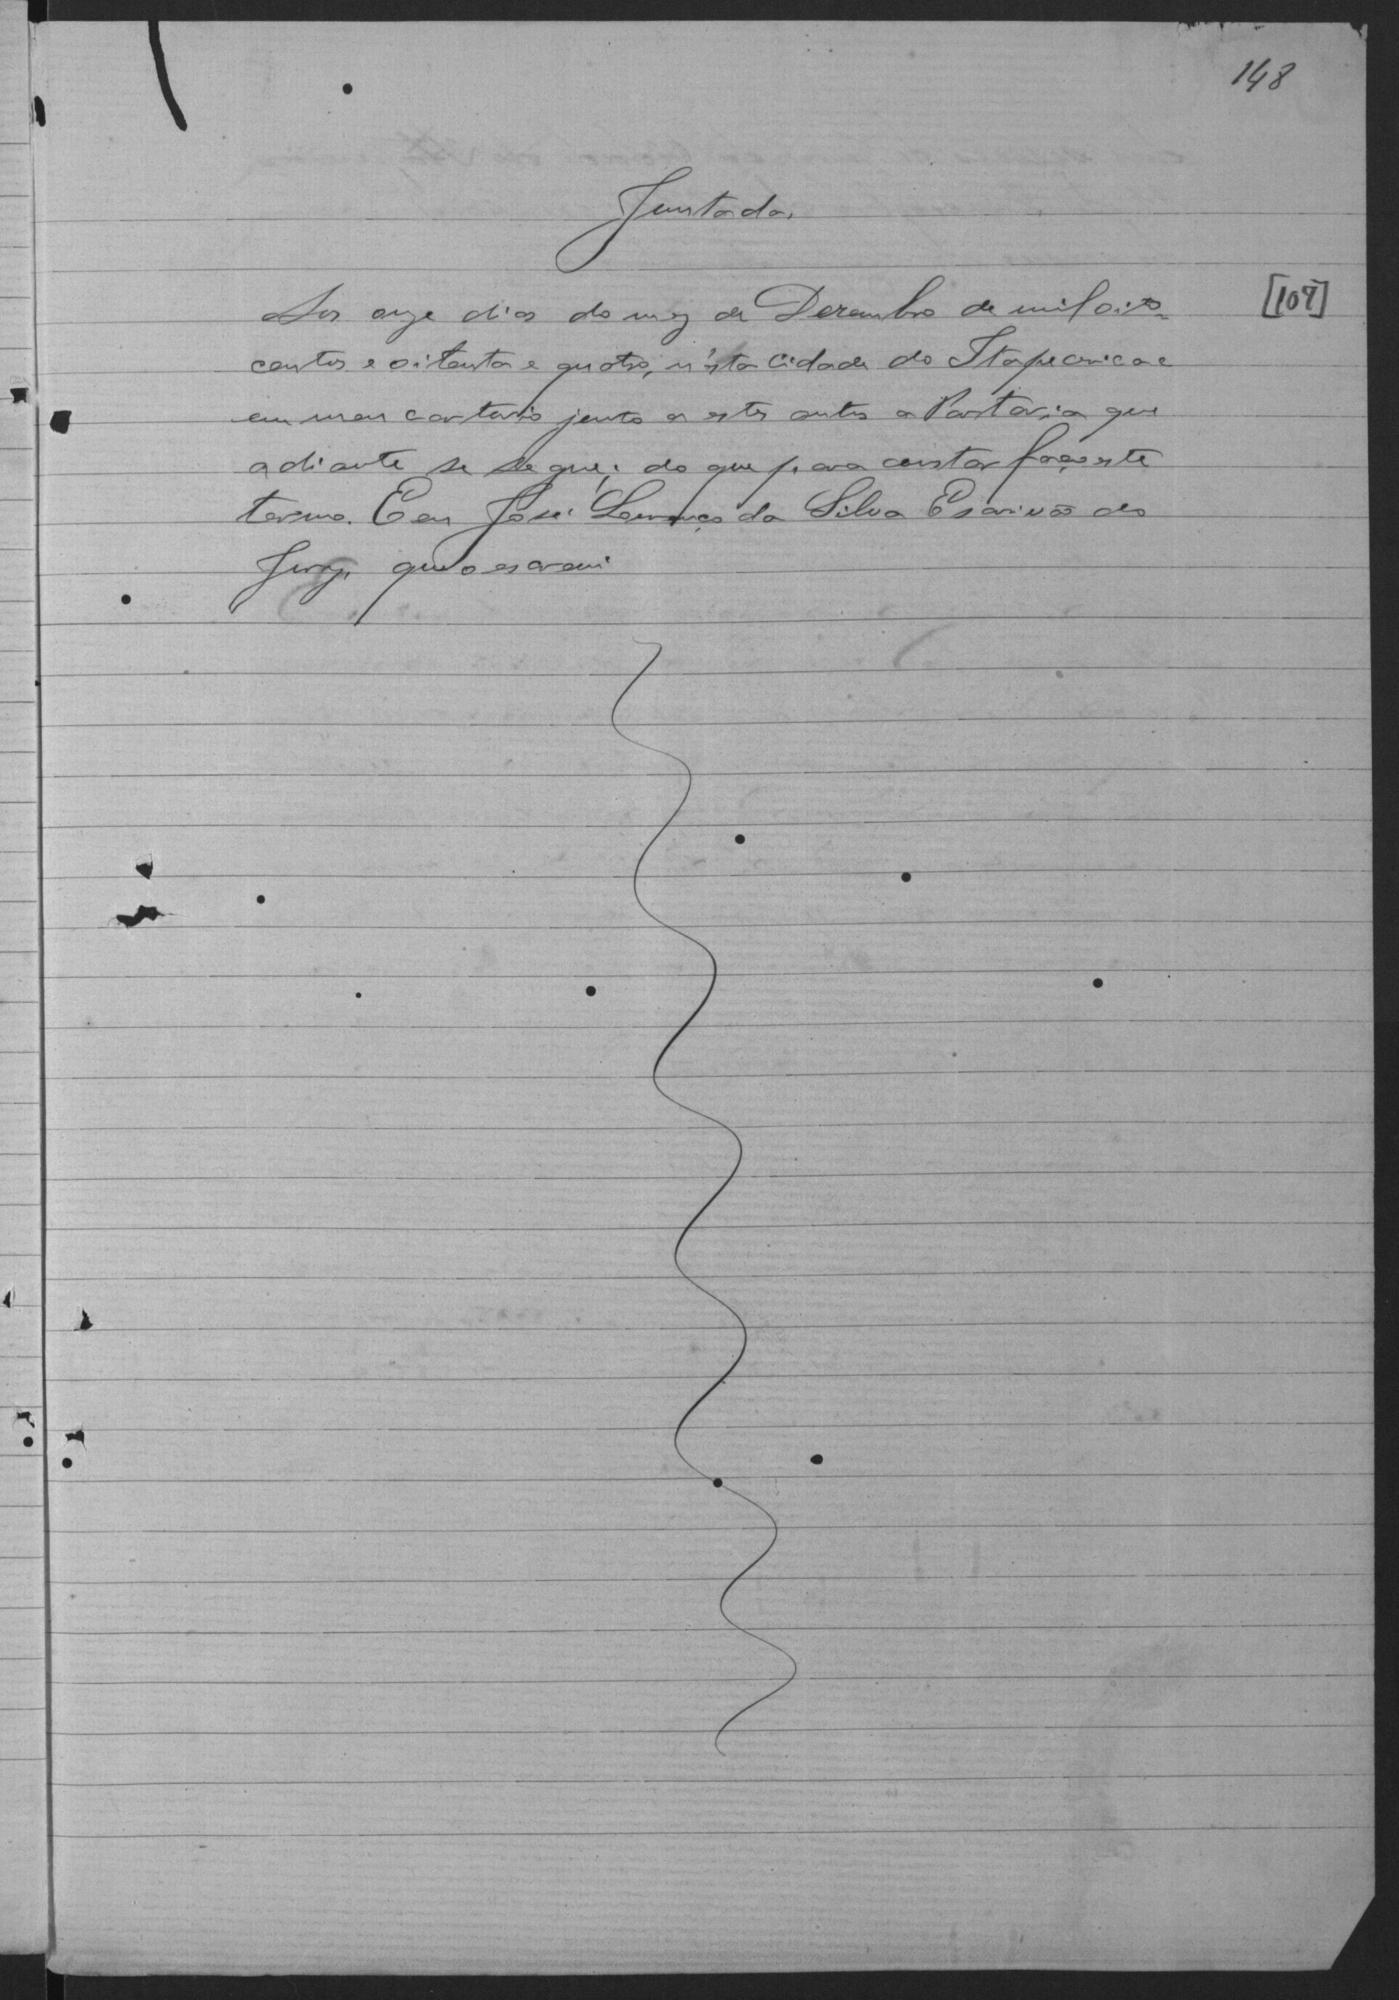 148
Juntada.
[107]
Aos onze dias do mez de Dezembro de mil oito-
centos e oitenta e quatro, n'esta Cidade do Itapecerica e
em meu cartorio junto a estes autos a Portaria que
adiante se segue; do que para constar faço este
termo. E eu José Lourenço da Silva Escrivão do
Jury, que o escrevi